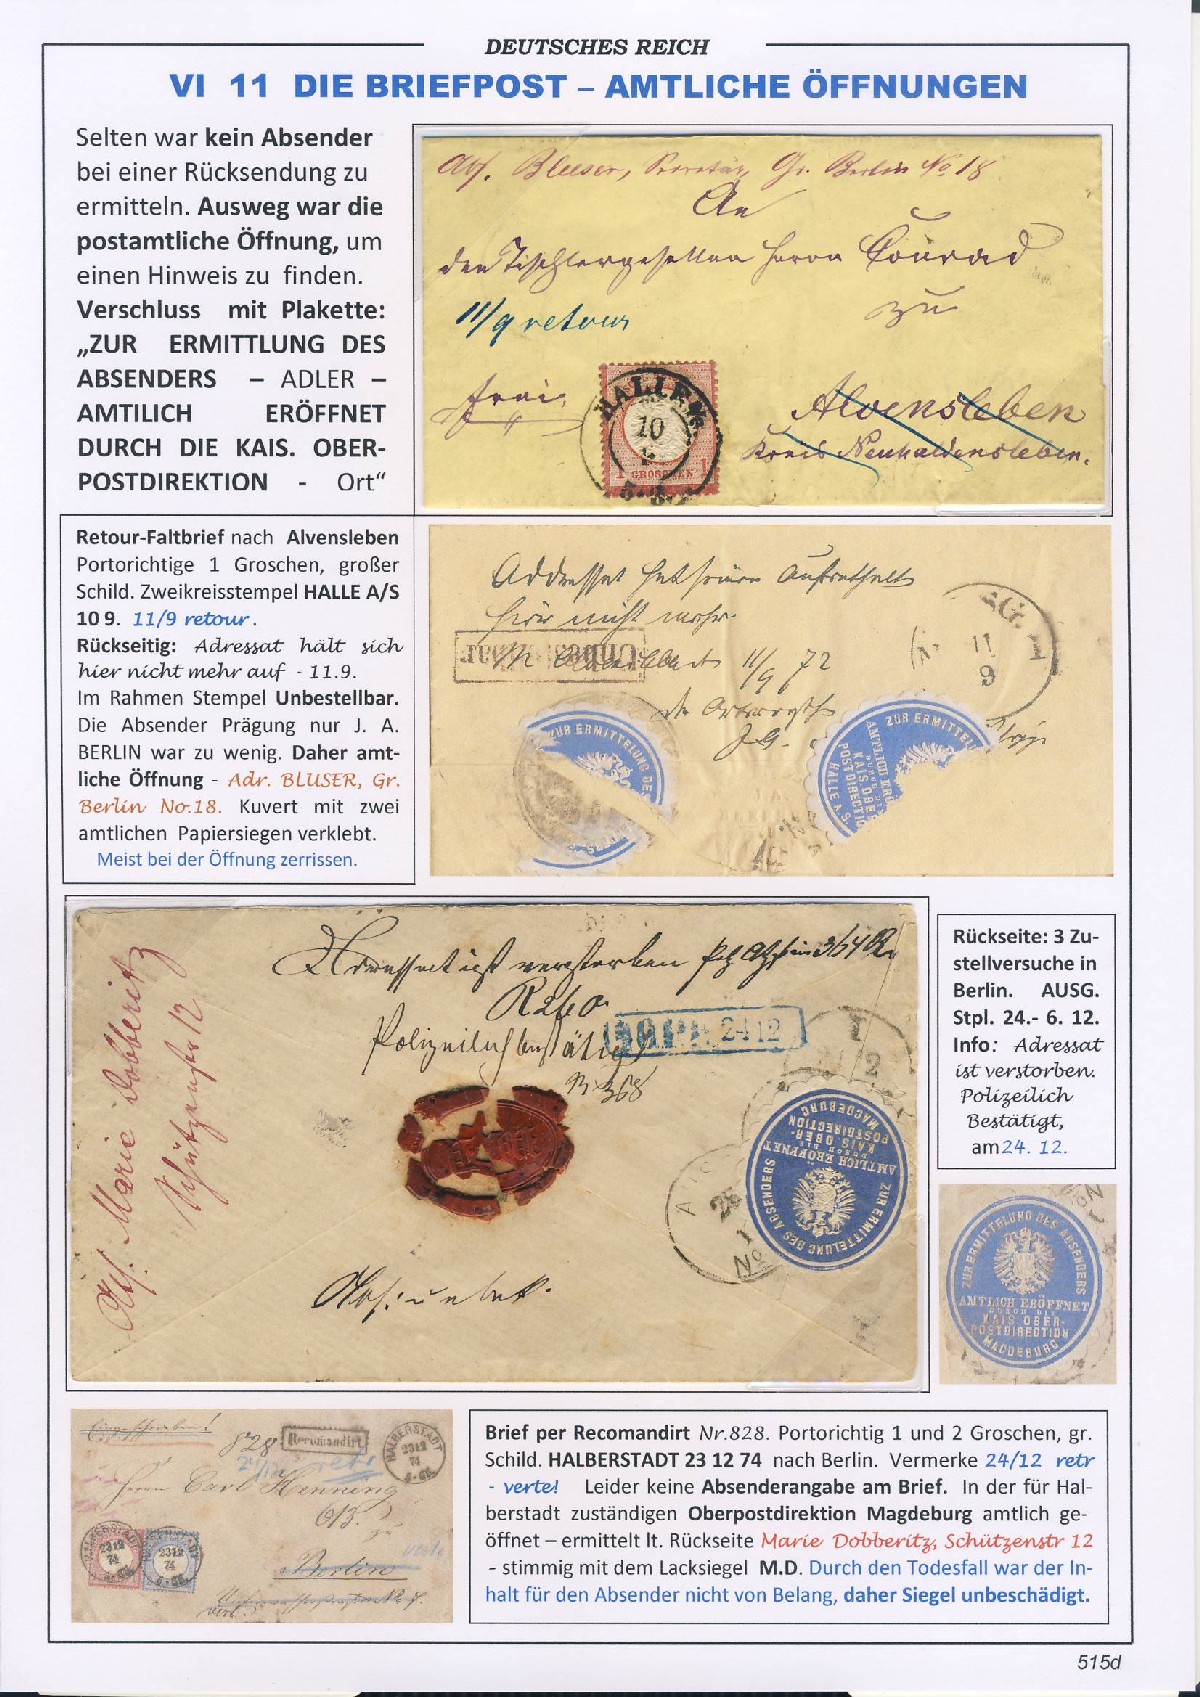 DEUTSCHES REICH
VI 11 DIE BRIEFPOST – AMTLICHE ÖFFNUNGEN
Selten war kein Absender
bei einer Rücksendung zu
ermitteln. Ausweg war die
postamtliche Öffnung, um
einen Hinweis zu finden.
Verschluss mit Plakette:
„ZUR ERMITTLUNG DES
ABSENDERS – ADLER –
AMTILICH ERÖFFNET
DURCH DIE KAIS. OBER-
POSTDIREKTION - Ort“
Abs. Bleeser, Secretär, Gr. Berlin No 18
An
den Tischlergesellen Herrn Conrad
zu
11/9 retour
frei
HALLE A/S.
10
9
1 GROSCHEN 1
Alvensleben
Kreis Neuhaldensleben.
Retour-Faltbrief nach Alvensleben
Portorichtige 1 Groschen, großer
Schild. Zweikreisstempel HALLE A/S
10 9. 11/9 retour.
Rückseitig: Adressat hält sich
hier nicht mehr auf - 11.9.
Im Rahmen Stempel Unbestellbar.
Die Absender Prägung nur J. A.
BERLIN war zu wenig. Daher amt-
liche Öffnung - Adr. BLUSER, Gr.
Berlin No.18. Kuvert mit zwei
amtlichen Papiersiegen verklebt.
Meist bei der Öffnung zerrissen.
Addressat hat seinen Aufenthalt
hier nicht mehr.
11/9 72
11
9
ZUR ERMITTELUNG DES
ZUR ERMITTELU
AMTLICH ER
KAIS OBE
POSTDIRECTIO
HALLE A.S.
Adressat ist verstorben
R 260
Polizeilich bestätigt
24 12
R 368
Abs. Marie Dobberitz
Schützenstr 12
Abs: unbek.
ZUR ERMITTELUNG DES ABSENDERS
AMTLICH ERÖFFNET
DURCH DIE
KAIS OBER-
POSTDIRECTION
MAGDEBURG
Rückseite: 3 Zu-
stellversuche in
Berlin. AUSG.
Stpl. 24.- 6. 12.
Info: Adressat
ist verstorben.
Polizeilich
Bestätigt,
am 24. 12.
ZUR ERMITTELUNG DES ABSENDERS
AMTLICH ERÖFFNET
DURCH DIE
KAIS OBER-
POSTDIRECTION
MAGDEBURG
Einzuschreiben!
828
Recomandirt
HALBERSTADT
23 12
74
24/12 retr
Herrn Carl Henning
Berlin
verte
HALBERSTADT
23 12
74
23 12
74
Brief per Recomandirt Nr.828. Portorichtig 1 und 2 Groschen, gr.
Schild. HALBERSTADT 23 12 74 nach Berlin. Vermerke 24/12 retr
- verte! Leider keine Absenderangabe am Brief. In der für Hal-
berstadt zuständigen Oberpostdirektion Magdeburg amtlich ge-
öffnet – ermittelt lt. Rückseite Marie Dobberitz, Schützenstr 12
- stimmig mit dem Lacksiegel M.D. Durch den Todesfall war der In-
halt für den Absender nicht von Belang, daher Siegel unbeschädigt.
515d